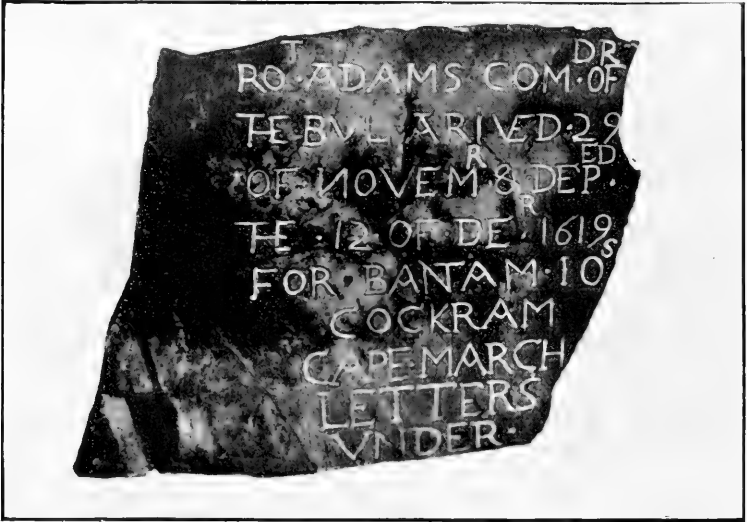 ROᵀ·ADAMS COM·ᴰᴿOF
THE BVL ARIVED·29
OF·NOVEMᴿ & DEPᴱᴰ·
THE·12 OF·DEᴿ·1619
FOR·BANTAM·IOˢ
COCKRAM
CAPE·MARCH
LETTERS
VNDER·